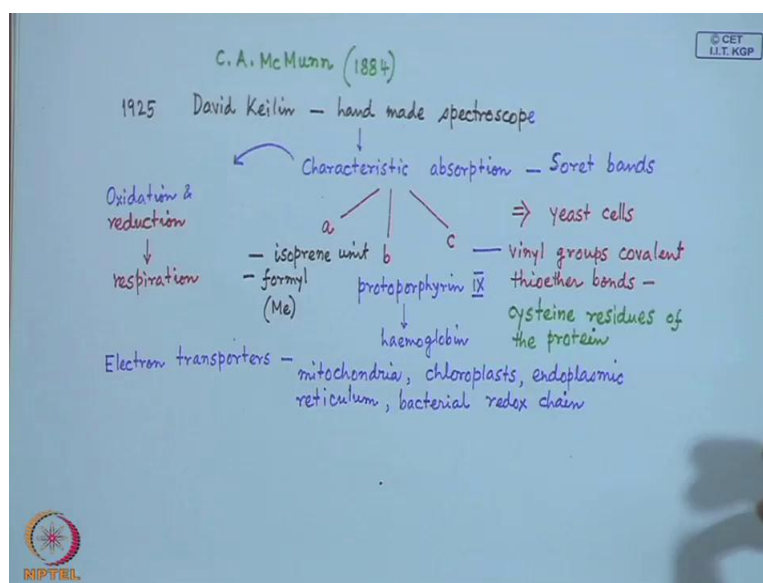 © CET
I.I.T. KGP
C.A. McMunn (1884)
1925 David Keilin – hand made spectroscope
Characteristic absorption – Soret bands
Oxidation &
reduction
respiration
a
b
c
– isoprene unit
– formyl
(Me)
protoporphyrin IX
haemoglobin
⇒ yeast cells
– vinyl groups covalent
thioether bonds –
cysteine residues of
the protein
Electron transporters –
mitochondria, chloroplasts, endoplasmic
reticulum, bacterial redox chain
NPTEL